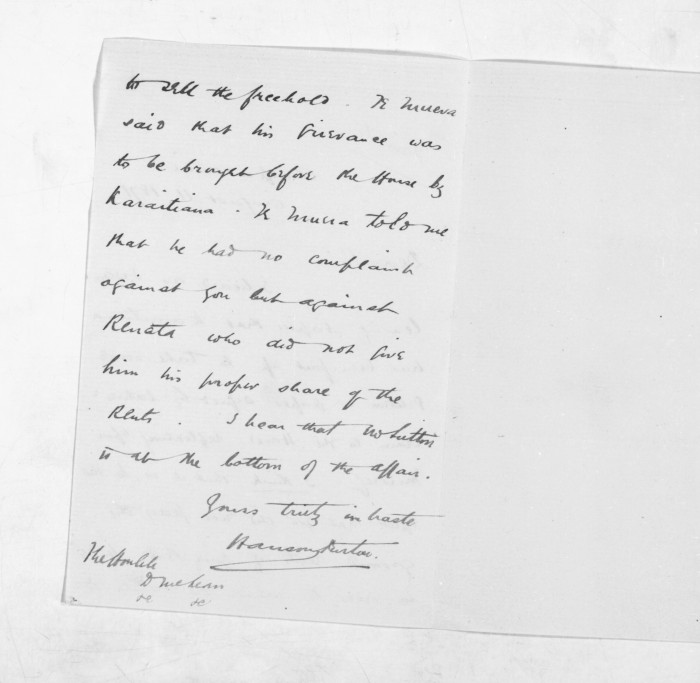 to sell the freehold. Te Muera
said that his Grievance was
to be brought before the House by
Karaitiana. Te Muera told me
that he had no complaint
against you but against
Renata who did not Give
him his proper share of the
Rents. I hear that
is at the bottom of the affair.
Yours truly in haste
Hanson Turton.
The Honble
D McLean
&c &c